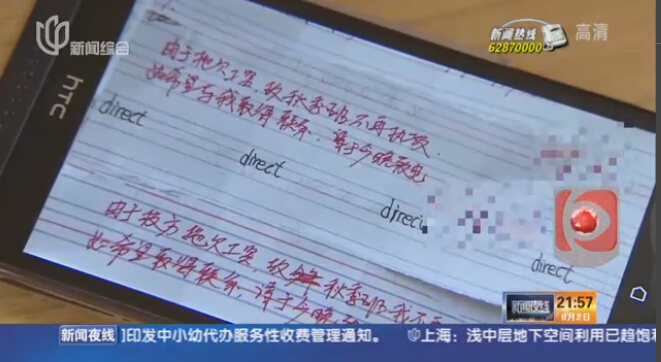 新闻综合
新闻热线
62870000
高清
htc
由于拖欠工资,故秋季班不再执教.
如希望与我取得联系,请于今晚致电
direct
direct
direct
direct
由于校方拖欠工资,故秋季班我不
如希望取得联系,请于今晚
新闻夜线
21:57
8月2日
新闻夜线
印发中小幼代办服务性收费管理通知。
上海:浅中层地下空间利用已趋饱和